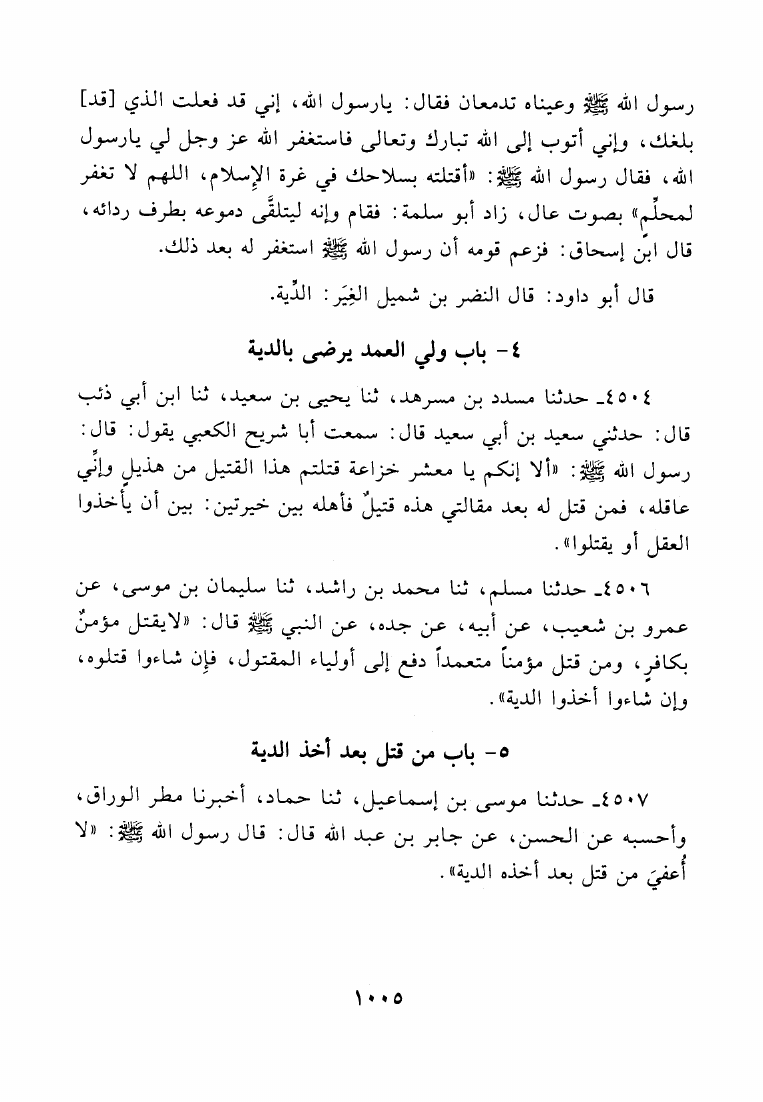 رسول الله ﷺ وعيناه تدمعان فقال: يارسول الله، إني قد فعلت الذي [قد]
بلغك، وإني أتوب إلى الله تبارك وتعالى فاستغفر الله عز وجل لي يارسول
الله، فقال رسول الله ﷺ: «أقتلته بسلاحك في غرة الإسلام، اللهم لا تغفر
لمحلِّمٍ» بصوت عال، زاد أبو سلمة: فقام وإنه ليتلقَّى دموعه بطرف ردائه،
قال ابن إسحاق: فزعم قومه أن رسول الله ﷺ استغفر له بعد ذلك.
قال أبو داود: قال النضر بن شميل الغِيَر: الدِّية.
٤- باب ولي العمد يرضى بالدية
٤٥٠٤ـ حدثنا مسدد بن مسرهد، ثنا يحيى بن سعيد، ثنا ابن أبي ذئب
قال: حدثني سعيد بن أبي سعيد قال: سمعت أبا شريح الكعبي يقول: قال:
رسول الله ﷺ: «ألا إنكم يا معشر خزاعة قتلتم هذا القتيل من هذيلٍ وإنِّي
عاقله، فمن قتل له بعد مقالتي هذه قتيلٌ فأهله بين خيرتين: بين أن يأخذوا
العقل أو يقتلوا».
٤٥٠٦ـ حدثنا مسلم، ثنا محمد بن راشد، ثنا سليمان بن موسى، عن
عمرو بن شعيب، عن أبيه، عن جده، عن النبي ﷺ قال: «لايقتل مؤمنٌ
بكافرٍ، ومن قتل مؤمناً متعمداً دفع إلى أولياء المقتول، فإن شاءوا قتلوه،
وإن شاءوا أخذوا الدية».
٥- باب من قتل بعد أخذ الدية
٤٥٠٧ـ حدثنا موسى بن إسماعيل، ثنا حماد، أخبرنا مطر الوراق،
وأحسبه عن الحسن، عن جابر بن عبد الله قال: قال رسول الله ﷺ: «لا
أُعفيَ من قتل بعد أخذه الدية».
١٠٠٥